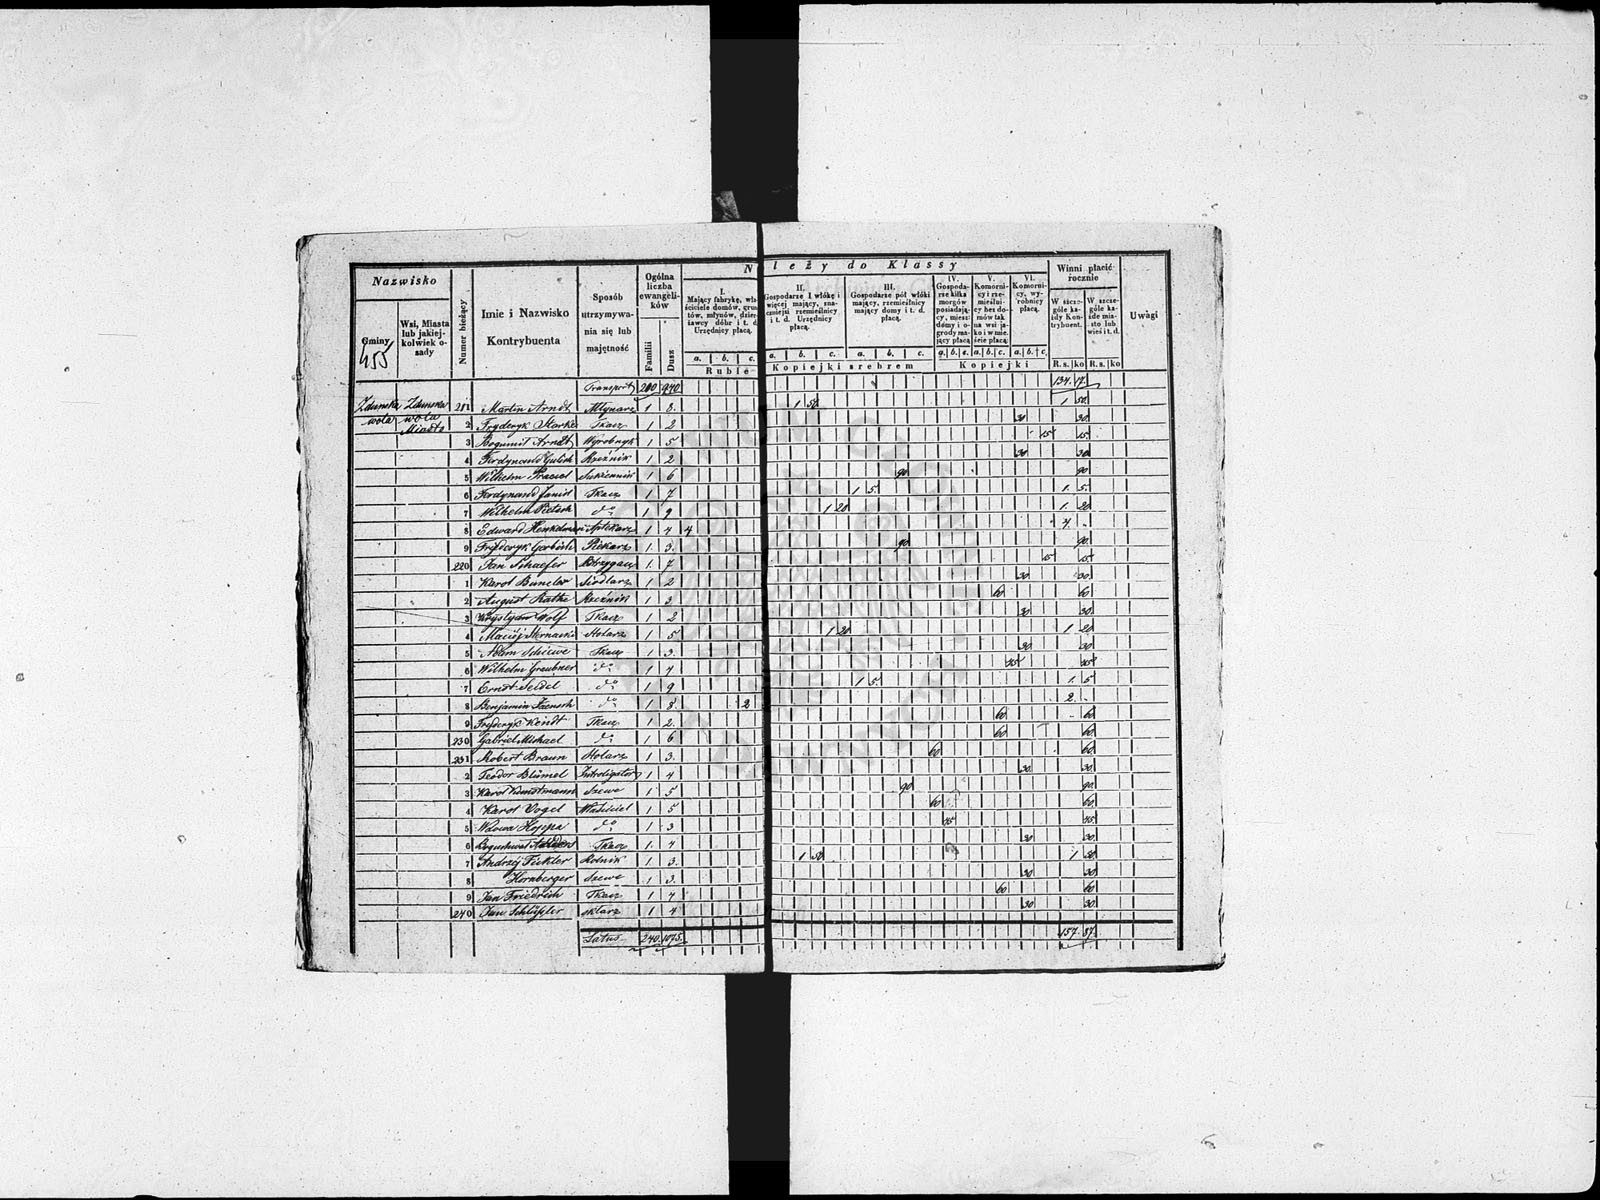 Nazwisko
Gminy
Wsi, Miasta lub jakiejkolwiek osady
Numer bieżący
Imie i Nazwisko Kontrybuenta
Sposób utrzymywania się lub majętność
Ogólna liczba ewangelików
Familii
Dusz
Należy do Klassy
I. Mający fabrykę, właściciele domów, gruntów, młynów, dzierżawcy dóbr i t. d. Urzędnicy płacą.
II. Gospodarze 1 włókę i więcej mający, znaczniejsi rzemieślnicy i t. d. Urzędnicy płacą.
III. Gospodarze pół włóki mający, rzemieślnicy mający domy i t. d. płacą.
IV. Gospodarze kilka morgów posiadający, mieszk. domy i ogrody mający płacą
V. Komornicy i rzemieślnicy bez domów tak na wsi jako i w mieście płacą
VI. Komornicy, wyrobnicy płacą.
Winni płacić rocznie
W szczególe każdy Kontrybuent.
W szczególe każde miasto lub wieś i t. d.
Uwagi
a. b. c. a. b. c. a. b. c. a. b. c. a. b. c. a. b. c. R.s. ko R.s. ko
Ruble
Kopiejki srebrem
Kopiejki
455
Transport 210 940 134. 17.
Zduńska wola Zduńska wola Miasto 211 Martin Arndt Młynarz 1 8. 1 50. 1 50.
2 Fryderyk Starke Tkacz 1 2 30 30
3 Bogumił Arndt Wyrobnik 1 5 15 15
4 Ferdynand Gulich Rzeźnik 1 2 30 30
5 Wilhelm Sukiennik 1 6 90 90
6 Ferdynand Tkacz 1 7 1 5. 1. 5.
7 Wilhelm Pietsch do 1 9 1 20 1. 20
8 Edward Henkelman Aptekarz 1 4 4 4. -
9 Fryderyk Piekarz 1. 3. 90 90
220 Jan Schaefer 1. 7 15 15
1 Karol Siodlarz 1 2 30 30
2 August Rathe Rzeźnik 1 3 60 60
3 Krystyan Wolf Tkacz 1 2 30 30
4 Maciej Stolarz 1 5 1 20 1 20
5 Adam Tkacz 1 3. 30 30
6 Wilhelm Graubner do 1 4 45 45
7 Ernst Seidel do 1 9 1 5. 1. 5
8 Benjamin Jaensch do 1 8 2 2. -
9 Fryderyk Wendt Tkacz 1 2. 60 60
230 Gabriel Michael do 1 6 60 60
231 Robert Braun Stolarz 1 3. 60 60
2 Teodor Blümel Introligator 1 4 30 30
3 Karol Kunstmann Szewc 1 5 90 90
4 Karol Vogel Właściciel 1 5 60 60
5 Wdowa Hoppa do 1 3 45 45
6 Tkacz 1. 4 30 30
7 Andrzej Fickler Rolnik 1 3. 1 50 1 50
8 Hornberger Szewc 1 3. 30 30
9 Jan Friedrich Tkacz 1 4 60 60
240 Jan Schlüssler szklarz 1 4 30 30
Latus 240. 1075. 157. 87.